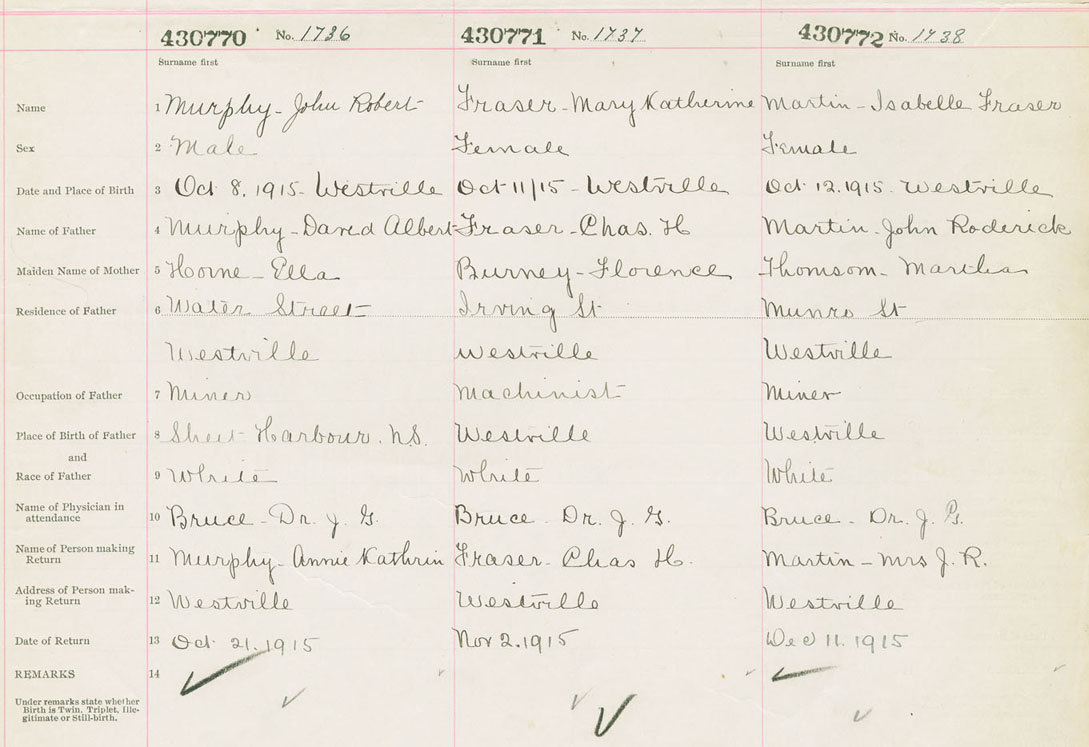 430770 No. 1736 430771 No. 1737 430772 No. 1738
Surname first Surname first Surname first
Name 1 Murphy - John Robert Fraser - Mary Katherine Martin - Isabelle Fraser
Sex 2 Male Female Female
Date and Place of Birth 3 Oct 8. 1915 - Westville Oct 11/15 - Westville Oct 12. 1915. Westville
Name of Father 4 Murphy - David Albert Fraser - Chas. H Martin - John Roderick
Maiden Name of Mother 5 Horne - Ella Burney - Florence Thomsom - Martha
Residence of Father 6 Water Street Irving St Munro St
Westville Westville Westville
Occupation of Father 7 Miner Machinist Miner
Place of Birth of Father 8 Sheet Harbour. N.S. Westville Westville
and
Race of Father 9 White White White
Name of Physician in
attendance 10 Bruce - Dr. J. G. Bruce Dr. J. G. Bruce - Dr. J. G.
Name of Person making
Return 11 Murphy - Annie Kathrin Fraser - Chas H. Martin - Mrs J. R.
Address of Person mak-
ing Return 12 Westville Westville Westville
Date of Return 13 Oct 21. 1915 Nov 2. 1915 Dec 11. 1915
REMARKS 14
Under remarks state whether
Birth is Twin. Triplet, Ille-
gitimate or Still-birth.